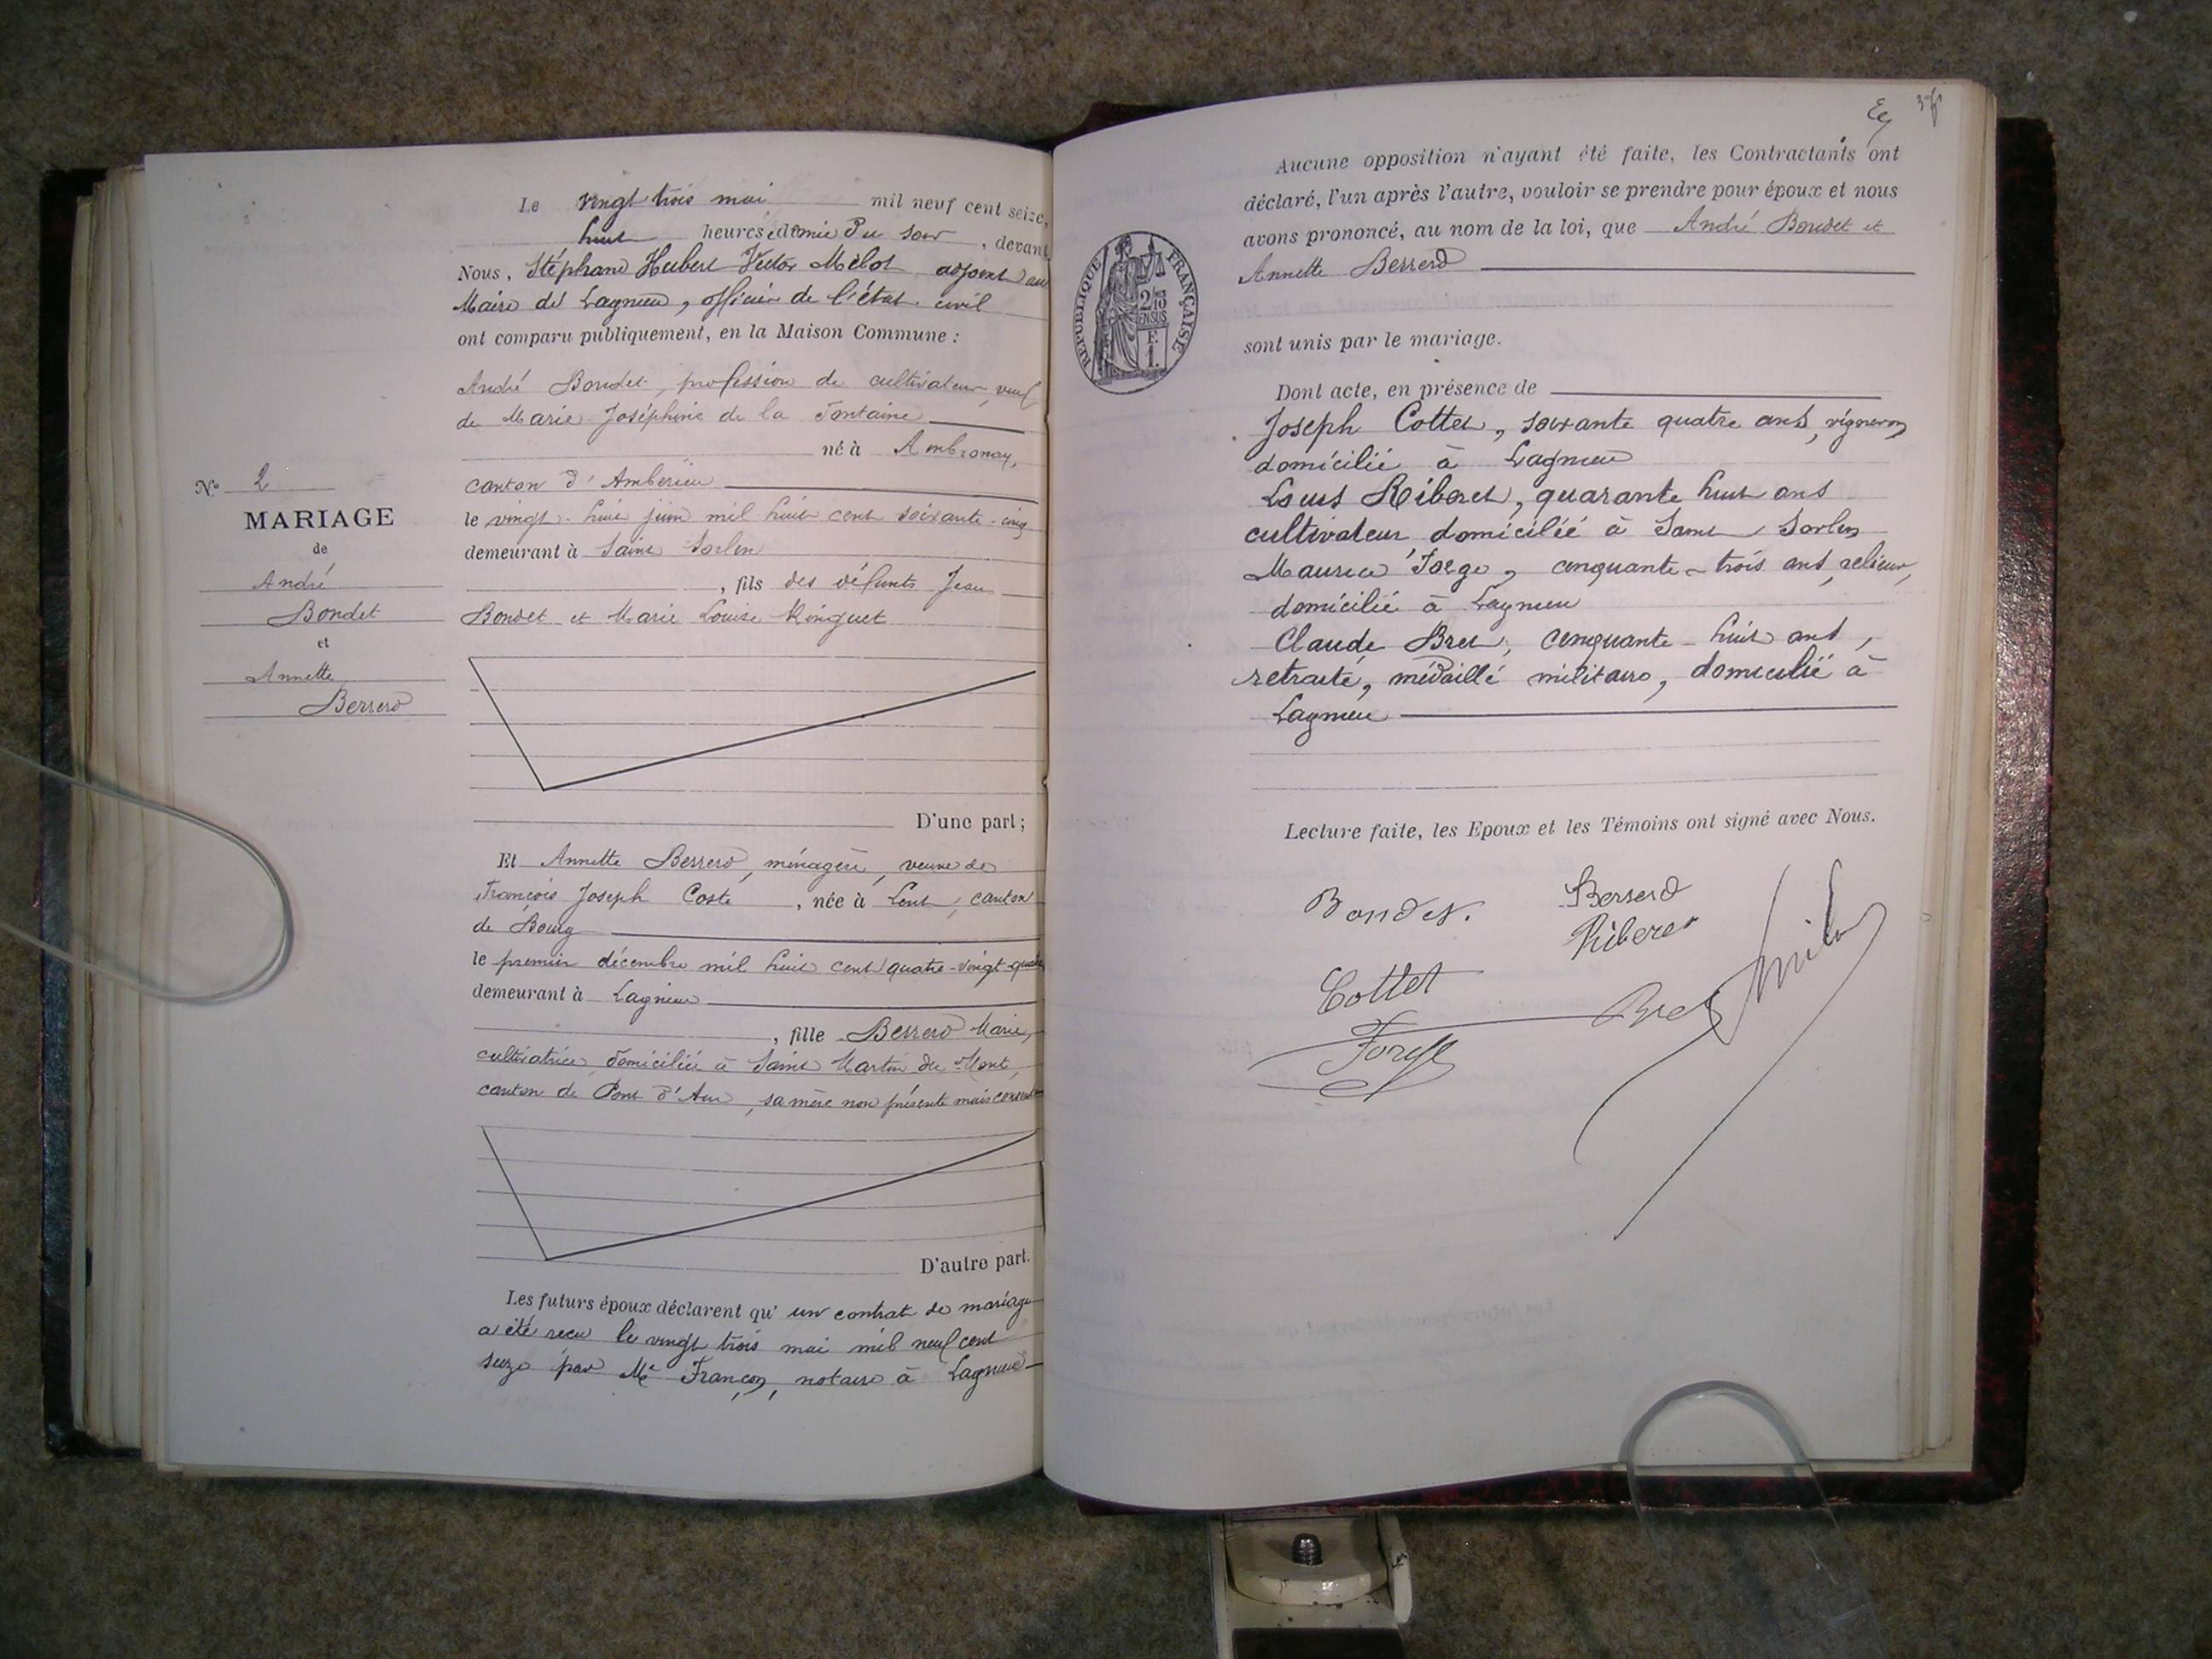 Le vingt trois mai mil neuf cent seize,
huit heures et demie du soir, devant
Nous, Stéphane Hubert Victor Milot adjoint au
Maire de Lagnieu, officier de l'état civil
ont comparu publiquement, en la Maison Commune :
André Bondet, profession de cultivateur, veuf
de Marie Joséphine de la Fontaine
né à Ambronay,
canton d'Ambérieu
le vingt-huit juin mil huit cent soixante-cinq
demeurant à Saint Sorlin
, fils des défunts Jean
Bondet et Marie Louise Ringuet
N° 2
MARIAGE
de
André
Bondet
et
Annette
Berrerd
D'une part;
Et Annette Berrerd, ménagère, veuve de
François Joseph Coste, née à Lent, canton
de Bourg
le premier décembre mil huit cent quatre-vingt-quatre
demeurant à Lagnieu
, fille Berrerd Marie,
cultivatrice domiciliée à Saint Martin du Mont,
canton de Pont d'Ain, sa mère non présente mais
D'autre part.
Les futurs époux déclarent qu'un contrat de mariage
a été reçu le vingt trois mai mil neuf cent
seize par Me Françon, notaire à Lagnieu
Aucune opposition n'ayant été faite, les Contractants ont
déclaré, l'un après l'autre, vouloir se prendre pour époux et nous
avons prononcé, au nom de la loi, que André Bondet et
Annette Berrerd
RÉPUBLIQUE FRANÇAISE
2/10
EN SUS
F.
1.
sont unis par le mariage.
Dont acte, en présence de
Joseph Cottet, soixante quatre ans, vigneron
domicilié à Lagnieu
Louis Riberet, quarante huit ans
cultivateur domicilié à Saint Sorlin
Maurice Forge, cinquante-trois ans, relieur,
domicilié à Lagnieu
Claude Bret, cinquante-huit ans,
retraité, médaillé militaire, domicilié à
Lagnieu
Lecture faite, les Epoux et les Témoins ont signé avec Nous.
Bondet.
Berrerd
Riberet
Milot
Cottet
Bret
Forge